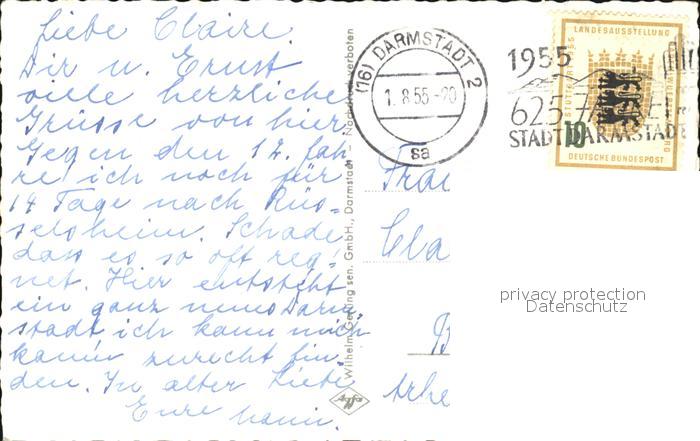 Liebe Claire.
Dir u. Ernst
viele herzliche
Grüsse von hier
Gegen den 12. fah
re ich noch für
14 Tage nach Rüs=
selsheim. Schade
dass es so oft reg=
net. Hier entsteht
ein ganz neues Darm
stadt ich kann mich
kaum zurecht fin
den. In alter Liebe
Eure
Wilhelm Gerling sen. GmbH., Darmstadt – Nachdruck verboten
(16) DARMSTADT 2
1.8.55-20
sa
1955
625 JAHRE
STADT DARMSTADT
LANDESAUSSTELLUNG
STUTTGART 1955
10
DEUTSCHE BUNDESPOST
Frau
Cla
B
privacy protection
Datenschutz